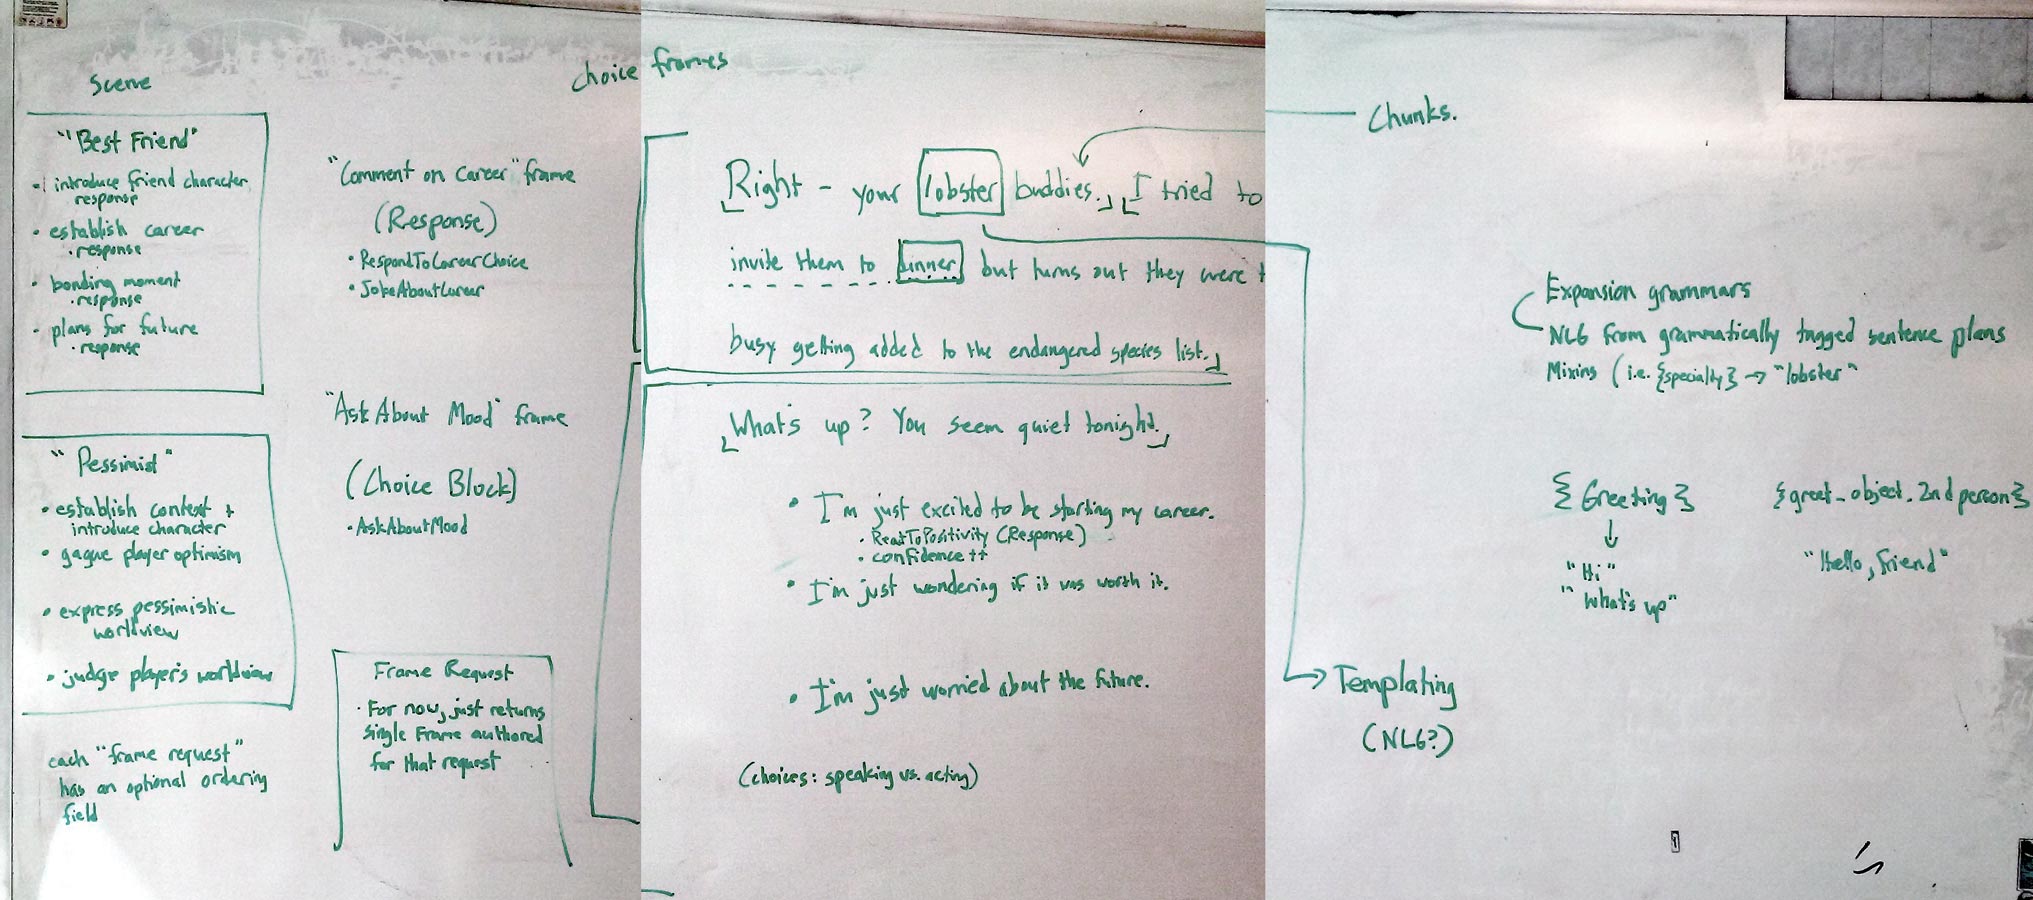 Scene
"Best Friend"
• introduce friend character
response
• establish career
• response
• bonding moment
• response
• plans for future
• response
"Pessimist"
• establish context +
introduce character
• gague player optimism
• express pessimistic
worldview
• judge player's worldview
each "frame request"
has an optional ordering
field
"Comment on Career" frame
(Response)
• RespondToCareerChoice
• JokeAboutCareer
"AskAbout Mood" frame
(Choice Block)
• AskAboutMood
Frame Request
• For now, just returns
single Frame authored
for that request
choice frames
Right - your lobster buddies. I tried to
invite them to dinner but turns out they were t
busy getting added to the endangered species list.
What's up? You seem quiet tonight.
• I'm just excited to be starting my career.
• ReactToPositivity (Response)
• confidence ++
• I'm just wondering if it was worth it.
• I'm just worried about the future.
(choices: speaking vs. acting)
Chunks.
Expansion grammars
NLG from grammatically tagged sentence plans
Mixins (i.e. {specialty} → "lobster"
{Greeting}
"Hi"
"What's up"
{greet_object.2nd person}
"Hello, friend"
Templating
(NLG?)